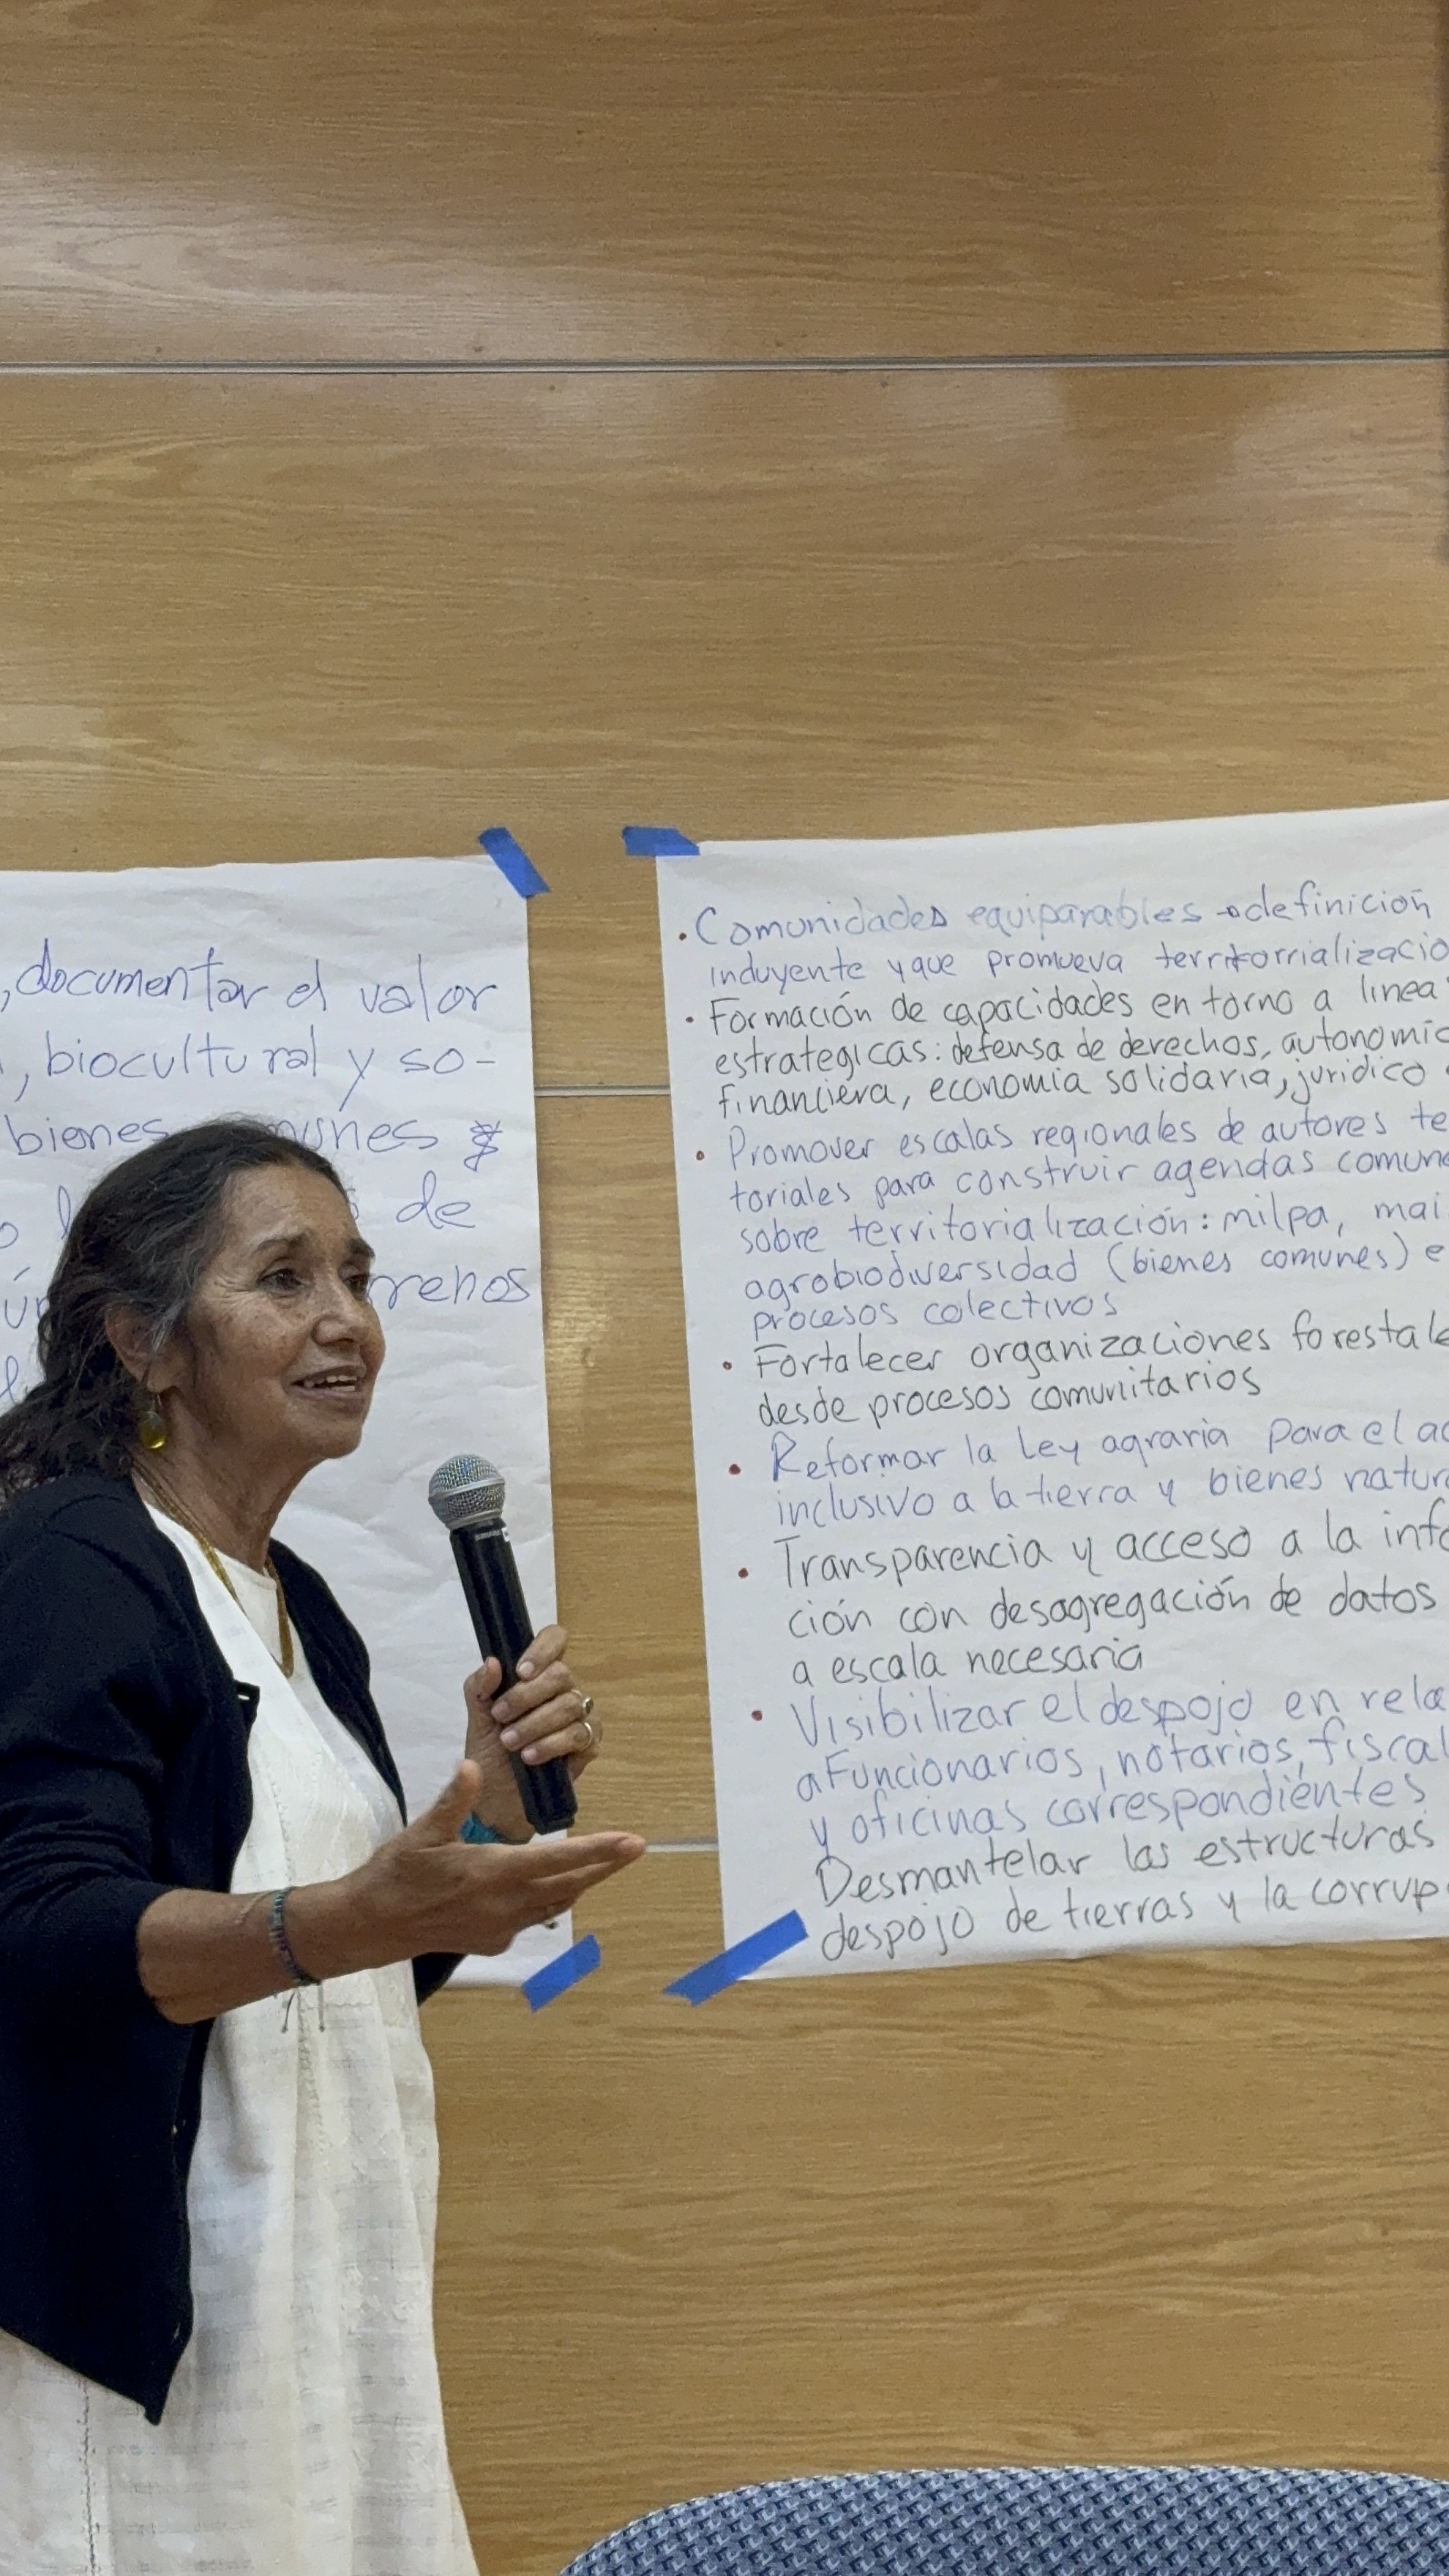 , documentar el valor
, biocultural y so-
bienes
de
Comunidades equiparables → definición
incluyente y que promueva territorrializacio
• Formación de capacidades en torno a linea
estrategicas: defensa de derechos, autonomic
financiera, economia solidaria, juridico
• Promover escalas regionales de autores te
toriales para construir agendas comun
sobre territorialización: milpa, mai
agrobiodiversidad (bienes comunes) e
procesos colectivos
• Fortalecer organizaciones forestale
desde procesos comunitarios
• Reformar la Ley agraria para el ac
inclusivo a la tierra y bienes natur
• Transparencia y acceso a la info
ción con desagregación de datos
a escala necesaria
• Visibilizar el despojo en rela
a Funcionarios, notarios, fiscal
y oficinas correspondientes
Desmantelar las estructuras
despojo de tierras y la corrup